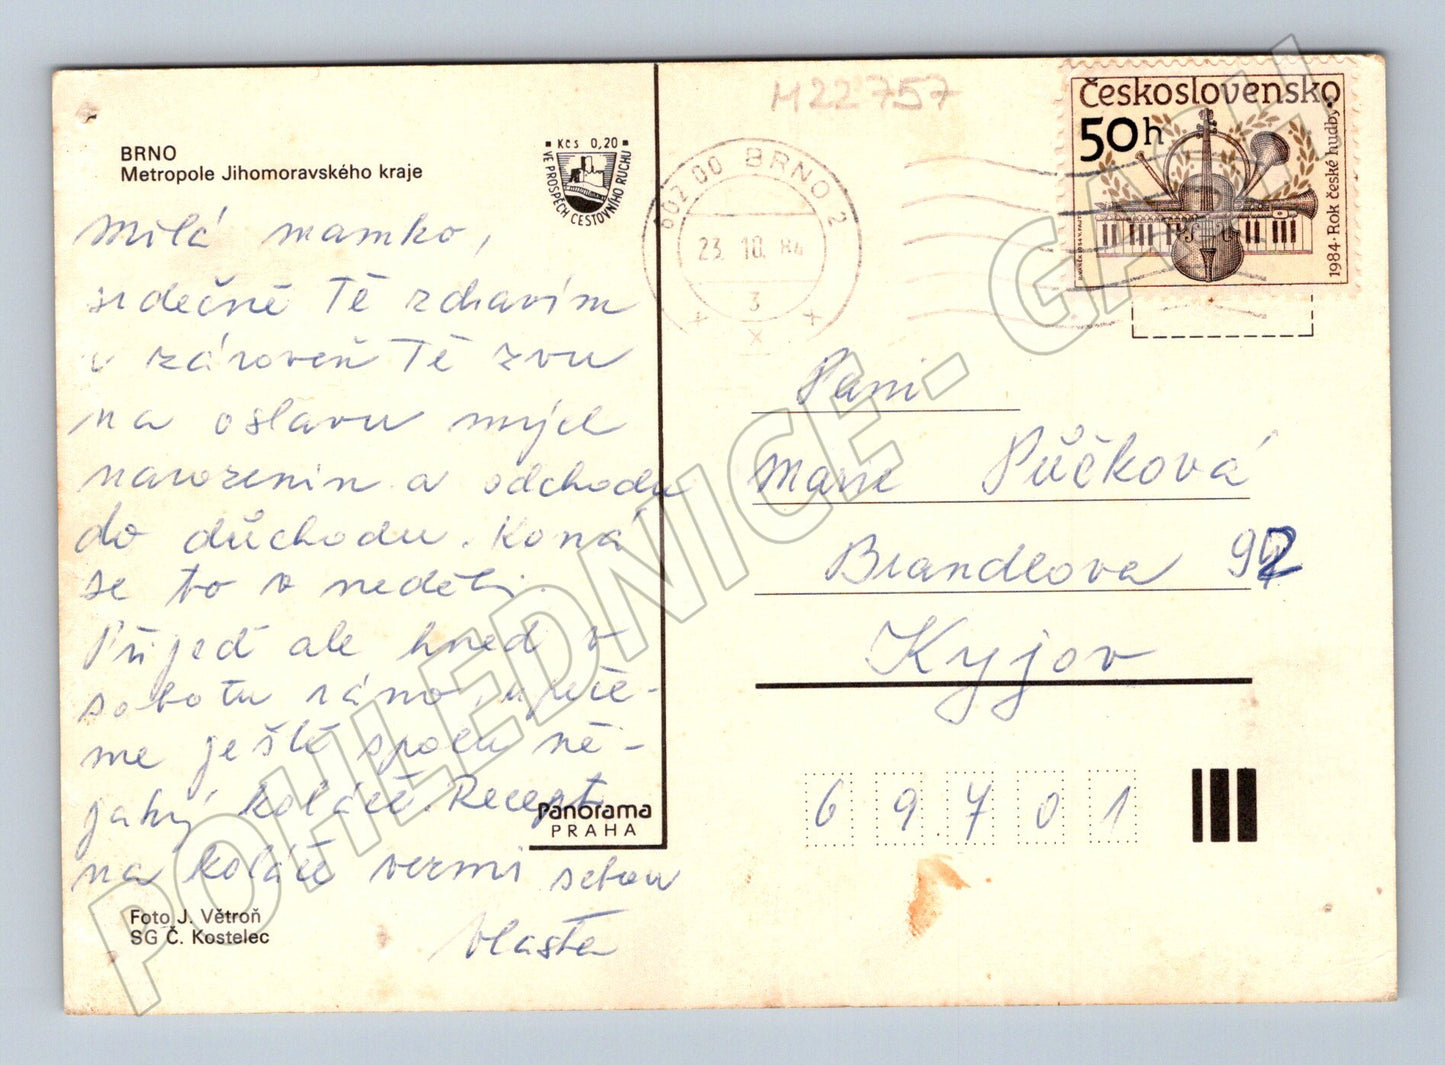 M22757
BRNO
Metropole Jihomoravského kraje
Kčs 0,20
VE PROSPĚCH CESTOVNÍHO RUCHU
602 00 BRNO 2
23.10.84
3
Československo
50h
1984 · Rok české hudby
Milá mamko,
srdečně Tě zdravím
a zároveň Tě zvu
na oslavu mých
narozenin a odchodu
do důchodu. Koná
se to v neděli.
Přijeď ale hned v
sobotu ráno, upeče-
me ještě spolu ně-
jaký koláče. Recept
na koláče vezmi sebou
Vlasta
Paní
Marie Půčková
Brandlova 92
Kyjov
69701
Panorama
PRAHA
Foto J. Větroň
SG Č. Kostelec
POHLEDNICE - GAKH